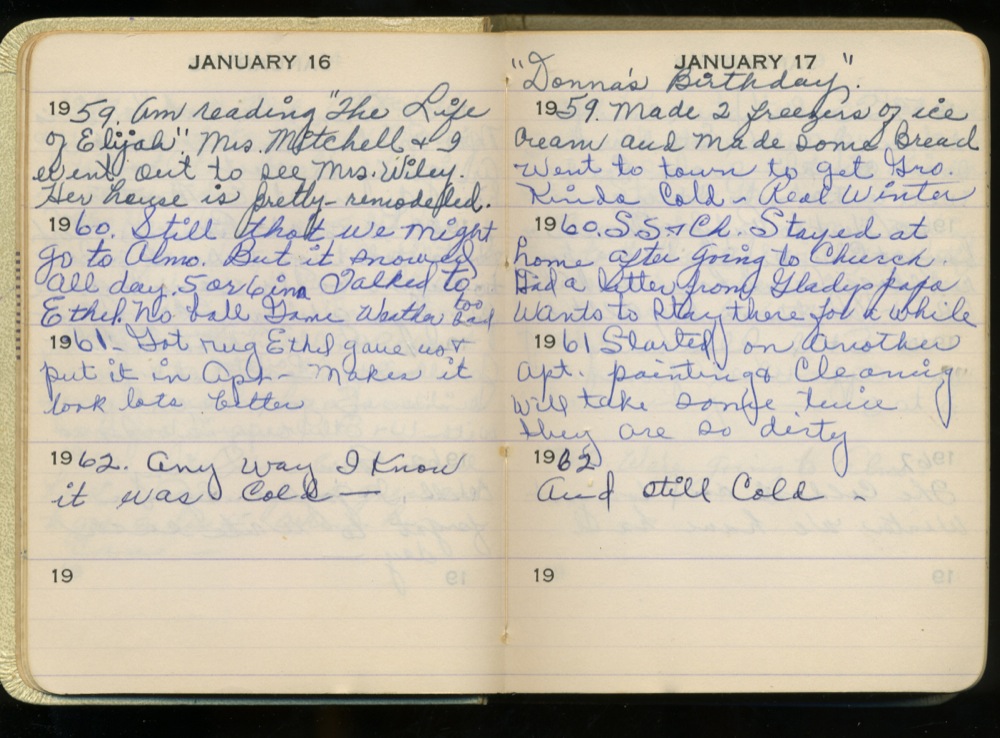 JANUARY 16
1959. Am reading "The Life
of Elijah". Mrs. Mitchell & I
went out to see Mrs. Wiley.
Her house is pretty - remodeled.
1960. Still thot we might
go to Almo. But it snowed
all day. 5 or 6 in Talked to
Ethel. No ball Game Weather too bad
1961 - Got rug Ethel gave us &
put it in Apt - Makes it
look lots better
1962. Any way I Know
it was Cold —
19
JANUARY 17
"Donna's Birthday".
1959. Made 2 freezers of ice
cream and made some Bread
Went to town to get Gro.
Kinda Cold - Real Winter
1960. S S & Ch. Stayed at
home after going to Church.
Had a letter from Gladys papa
Wants to stay there for a while
1961 Started on another
apt. painting & Cleaning
Will take some time
they are so dirty
1962
And still Cold -
19